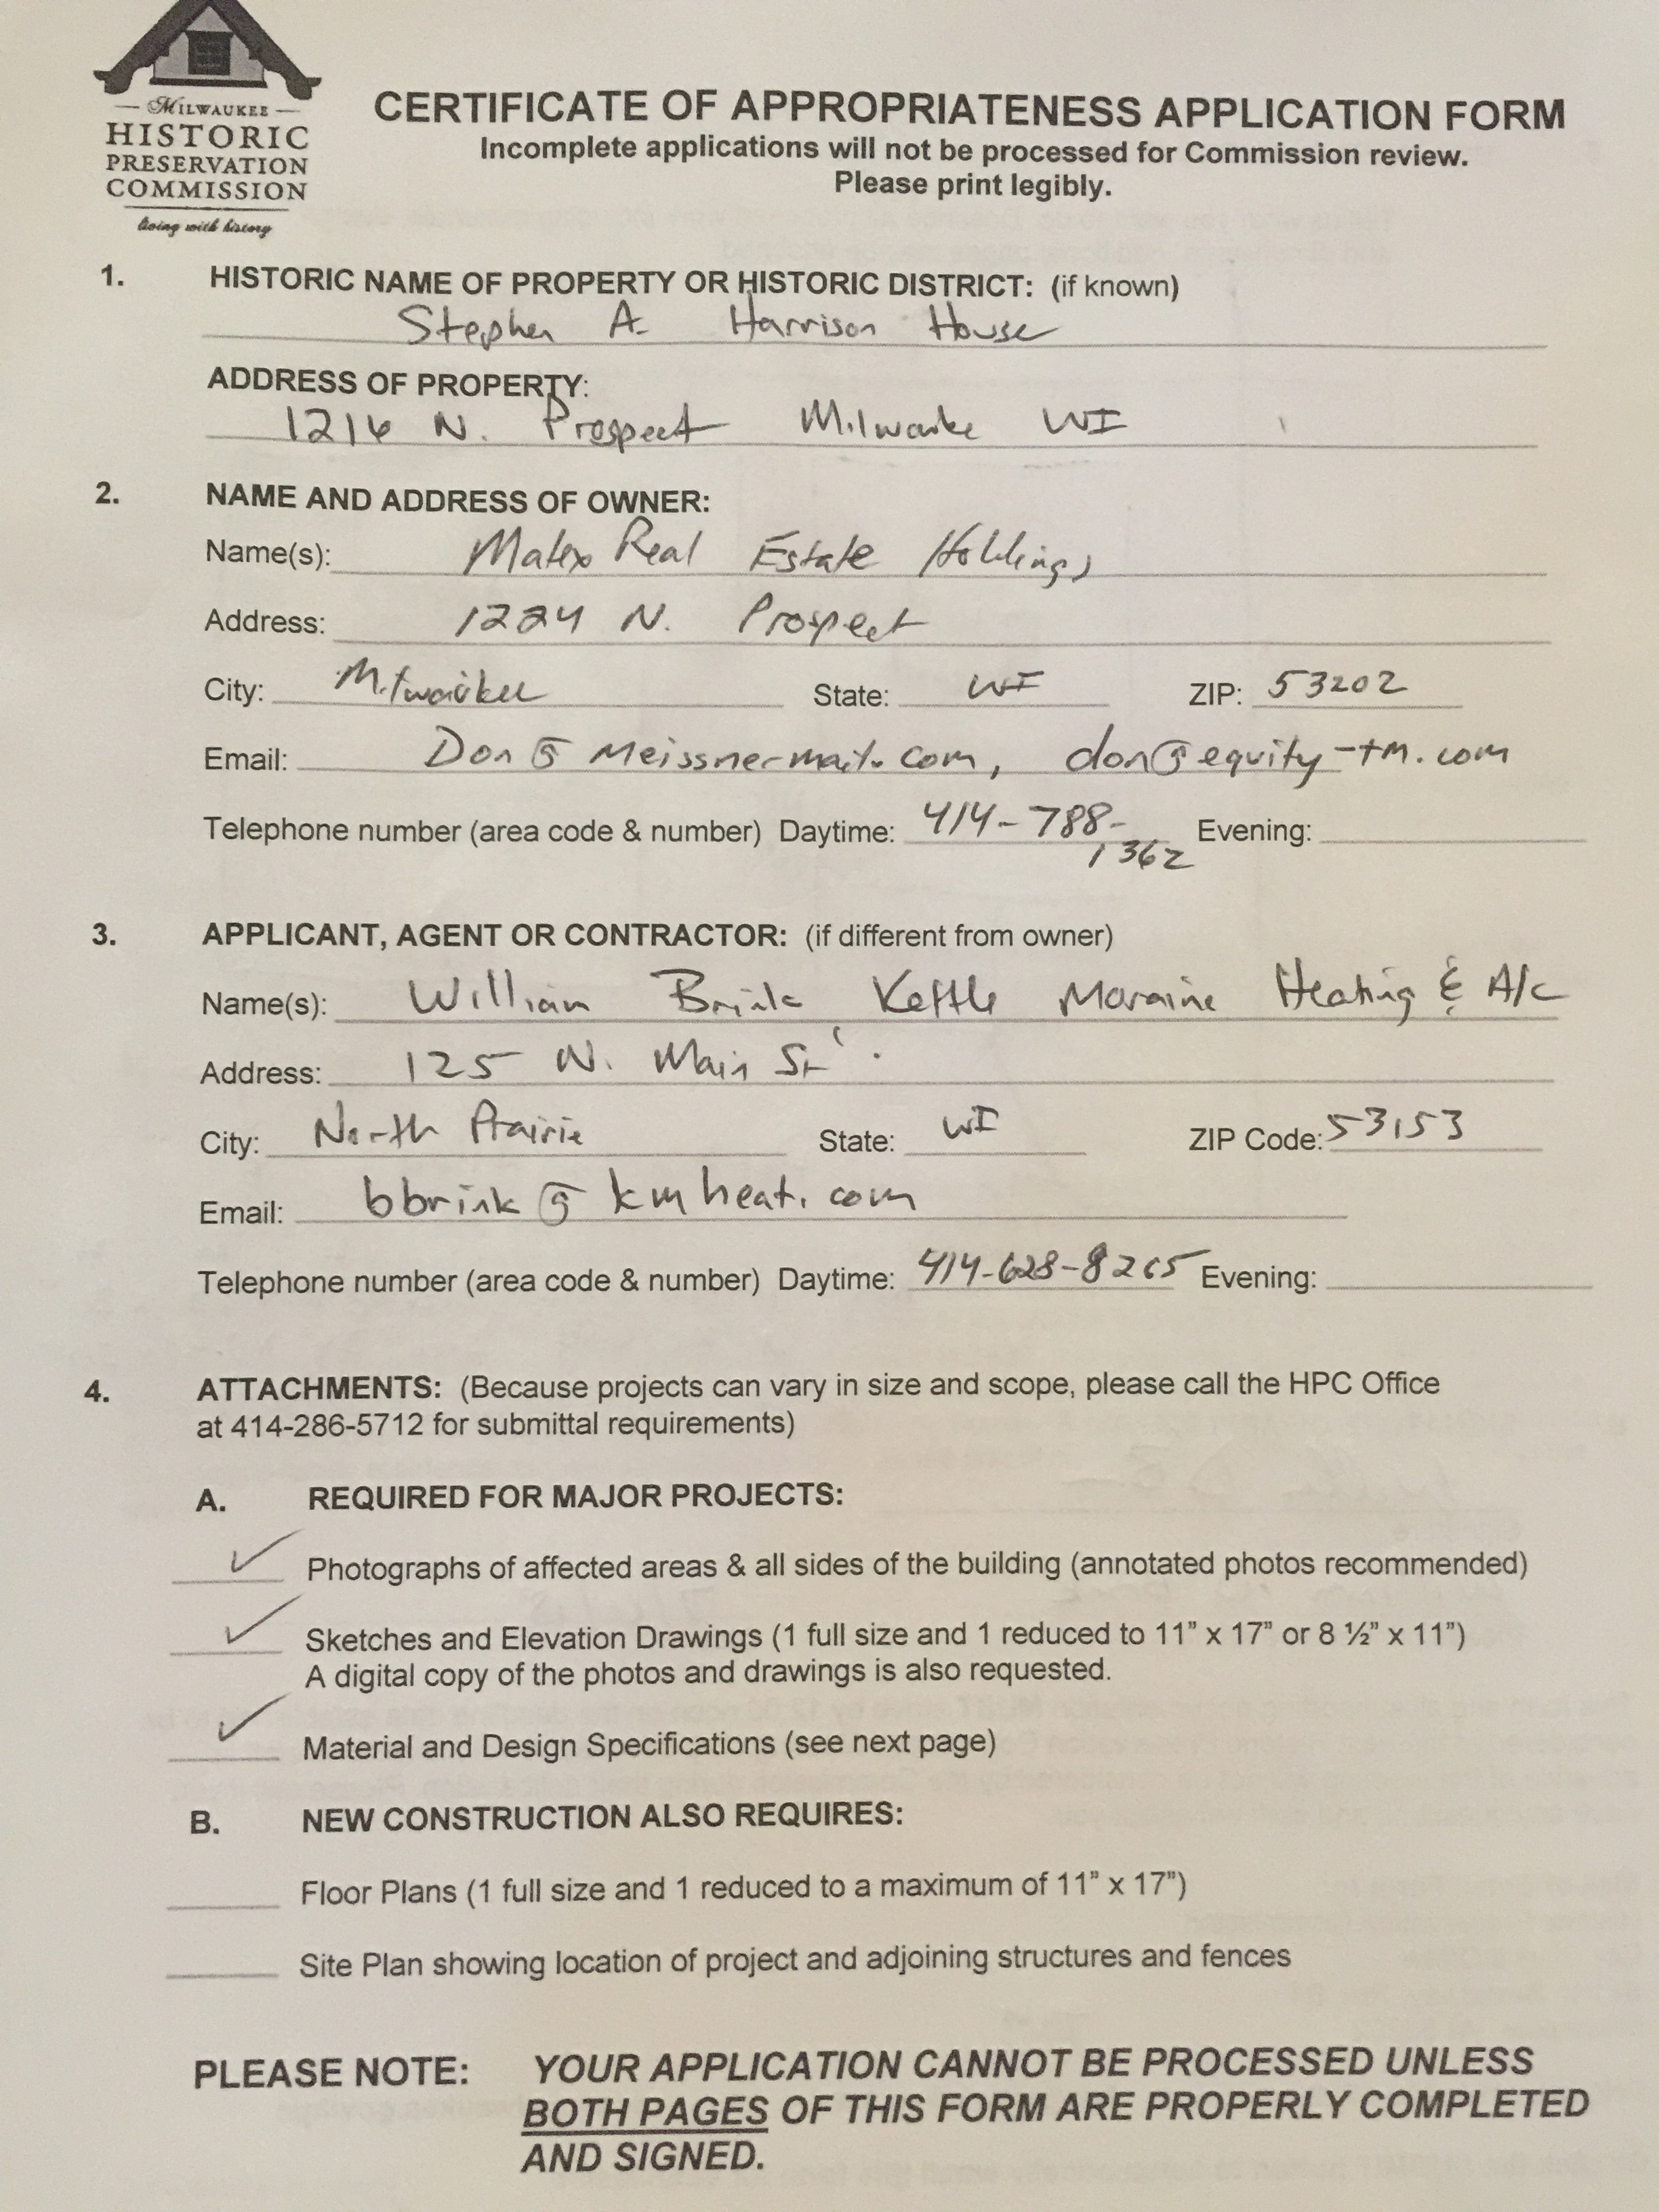 MILWAUKEE
HISTORIC
PRESERVATION
COMMISSION
living with history
CERTIFICATE OF APPROPRIATENESS APPLICATION FORM
Incomplete applications will not be processed for Commission review.
Please print legibly.
1. HISTORIC NAME OF PROPERTY OR HISTORIC DISTRICT: (if known)
Stephen A. Harrison House
ADDRESS OF PROPERTY:
1216 N. Prospect Milwaukee WI
2. NAME AND ADDRESS OF OWNER:
Name(s): Matex Real Estate Holdings
Address: 1224 N. Prospect
City: Milwaukee State: WI ZIP: 53202
Email: Don@Meissnermail.com, don@equity-tm.com
Telephone number (area code & number) Daytime: 414-788-1362 Evening:
3. APPLICANT, AGENT OR CONTRACTOR: (if different from owner)
Name(s): William Brink Kettle Moraine Heating & A/C
Address: 125 N. Main St.
City: North Prairie State: WI ZIP Code: 53153
Email: bbrink@kmheat.com
Telephone number (area code & number) Daytime: 414-628-8265 Evening:
4. ATTACHMENTS: (Because projects can vary in size and scope, please call the HPC Office
at 414-286-5712 for submittal requirements)
A. REQUIRED FOR MAJOR PROJECTS:
✓ Photographs of affected areas & all sides of the building (annotated photos recommended)
✓ Sketches and Elevation Drawings (1 full size and 1 reduced to 11" x 17" or 8 ½" x 11")
A digital copy of the photos and drawings is also requested.
✓ Material and Design Specifications (see next page)
B. NEW CONSTRUCTION ALSO REQUIRES:
Floor Plans (1 full size and 1 reduced to a maximum of 11" x 17")
Site Plan showing location of project and adjoining structures and fences
PLEASE NOTE: YOUR APPLICATION CANNOT BE PROCESSED UNLESS
BOTH PAGES OF THIS FORM ARE PROPERLY COMPLETED
AND SIGNED.